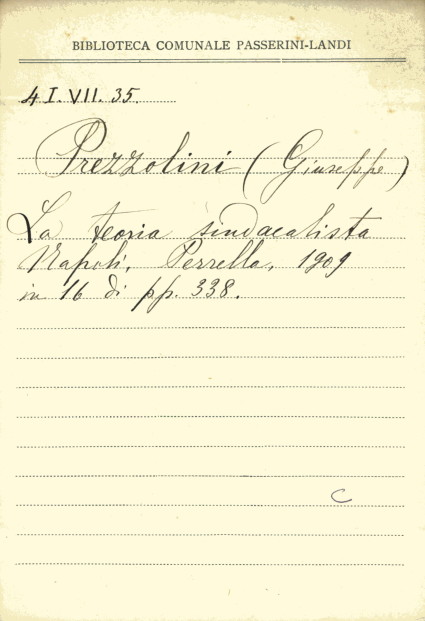 BIBLIOTECA COMUNALE PASSERINI-LANDI
4 I. VII. 35.
Prezzolini (Giuseppe)
La teoria sindacalista
Napoli, Perrella, 1909
in 16 di pp. 338.
C